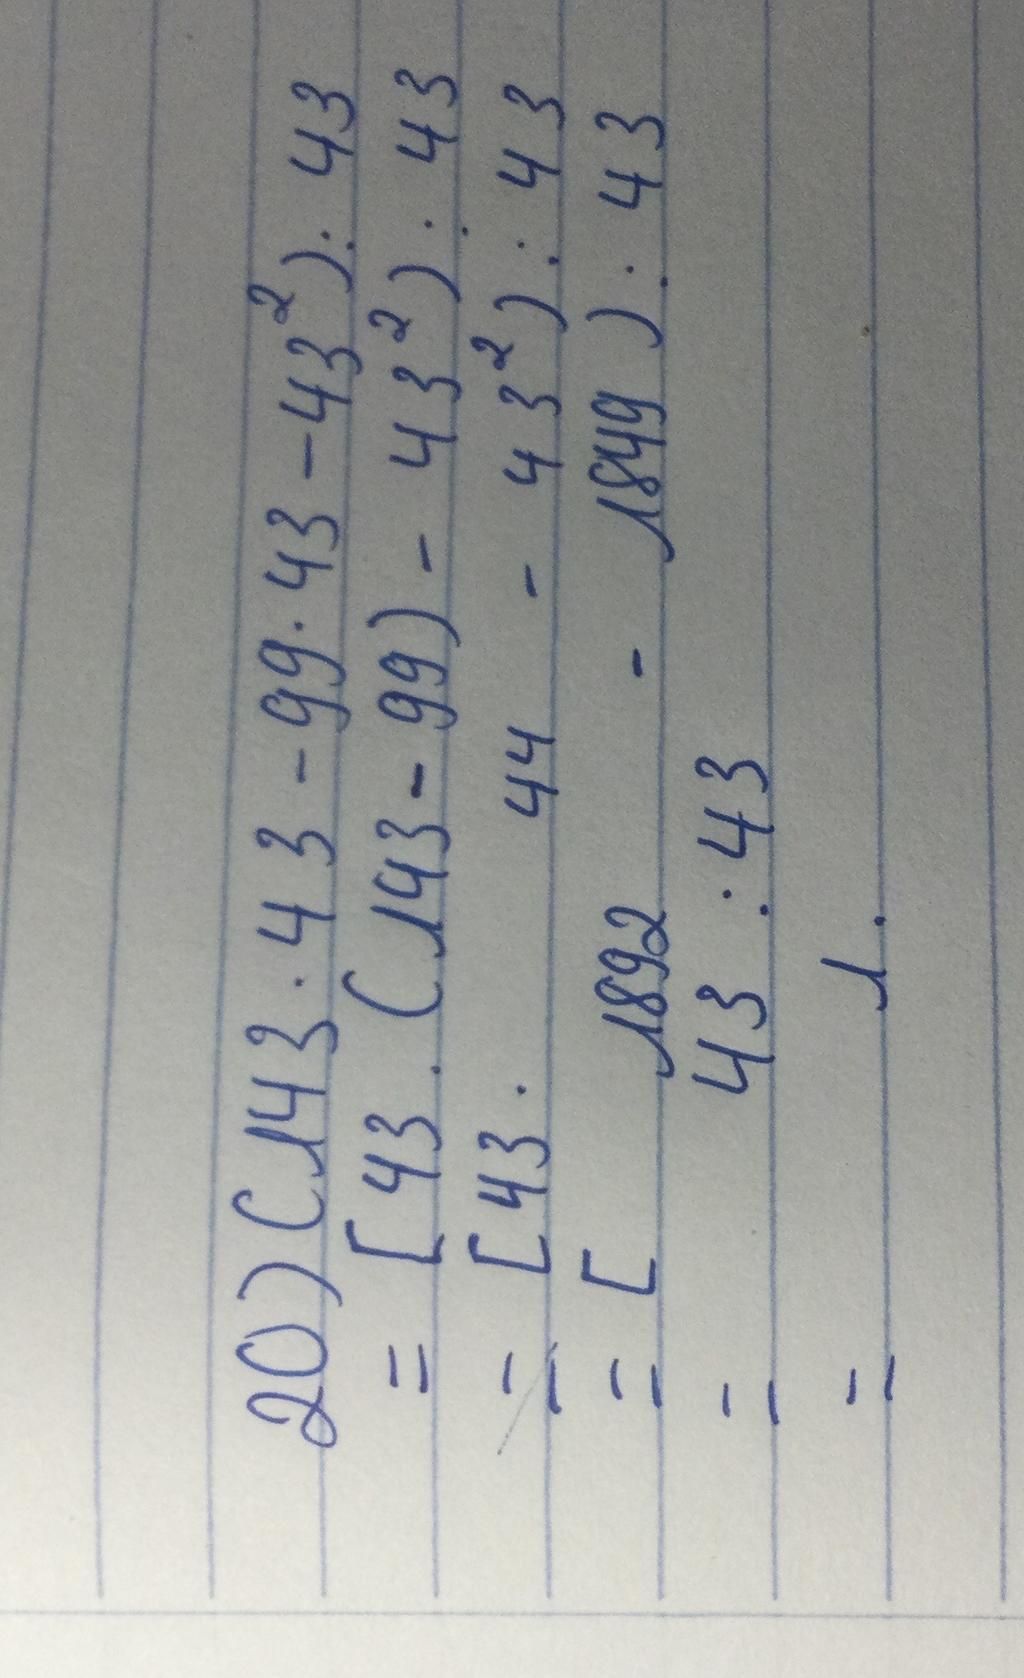 20) (143 . 43 - 99 . 43 - 43²) : 43
= [43 . (143 - 99) - 43²) : 43
= [43 . 44 - 43²) : 43
= [ 1892 - 1849 ) : 43
= 43 : 43
= 1.